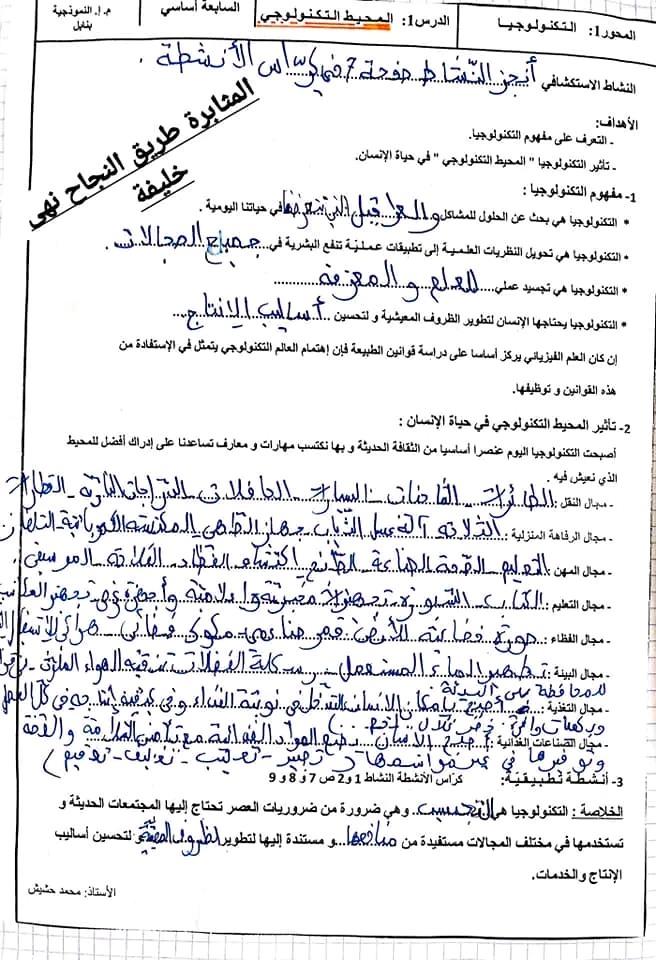 المحور1: التكنولوجيا
الدرس1: المحيط التكنولوجي
السابعة أساسي
م.إ. النموذجية بنابل
النشاط الاستكشافي أنجز النشاط صفحة 7 في كراس الأنشطة.
المثابرة طريق النجاح نهى
خليفة
الأهداف:
- التعرف على مفهوم التكنولوجيا.
- تأثير التكنولوجيا " المحيط التكنولوجي " في حياة الإنسان.
1- مفهوم التكنولوجيا :
* التكنولوجيا هي بحث عن الحلول للمشاكل والعراقيل التي تعترضنا في حياتنا اليومية .
* التكنولوجيا هي تحويل النظريات العلمية إلى تطبيقات عملية تنفع البشرية في جميع المجالات.
* التكنولوجيا هي تجسيد عملي للعلم والمعرفة
* التكنولوجيا يحتاجها الإنسان لتطوير الظروف المعيشية و لتحسين أساليب الإنتاج
إن كان العلم الفيزيائي يركز أساسا على دراسة قوانين الطبيعة فإن إهتمام العالم التكنولوجي يتمثل في الإستفادة من
هذه القوانين و توظيفها.
2- تأثير المحيط التكنولوجي في حياة الإنسان :
أصبحت التكنولوجيا اليوم عنصرا أساسيا من الثقافة الحديثة و بها نكتسب مهارات و معارف تساعدنا على إدراك أفضل للمحيط
الذي نعيش فيه .
- مجال النقل : الطائرات - الشاحنات - السيارات - الحافلات - الدراجات النارية - القطارات
- مجال الرفاهة المنزلية : الثلاجة آلة غسل الثياب جهاز الطهي المكنسة الكهربائية التلفاز
- مجال المهن : التعليم الصحة الصناعة الطبخ الفلاحة الموسيقى
- مجال التعليم : الكتاب السبورة تجهيزات مخبرية وإعلامية وأجهزة
- مجال الفضاء : صورة فضائية للأرض قمر صناعي مكوك فضائي
- مجال البيئة : تطهير الماء المستعمل رسكلة الفضلات تنقية الهواء الملوث
للمحافظة على البيئة
- مجال التغذية : أصبح بإمكان الإنسان التدخل في نوعية الغذاء و في كيفية إنتاجه في كل الفصول
- مجال الصناعات الغذائية : أصبح الإنسان يصنع المواد الغذائية مع ضمان السلامة والصحة
وتوفيرها في غير مواسمها ( تصبير - تعليب - تغليف - تعقيم )
3- أنشطة تطبيقية: كراس الأنشطة النشاط 1 و 2 ص 7 و 8 و 9
الخلاصة : التكنولوجيا هي التجسيد وهي ضرورة من ضروريات العصر تحتاج إليها المجتمعات الحديثة و
تستخدمها في مختلف المجالات مستفيدة من منافعها و مستندة إليها لتطوير ظروف المعيشة و لتحسين أساليب
الإنتاج والخدمات.
الأستاذ: محمد حشيش